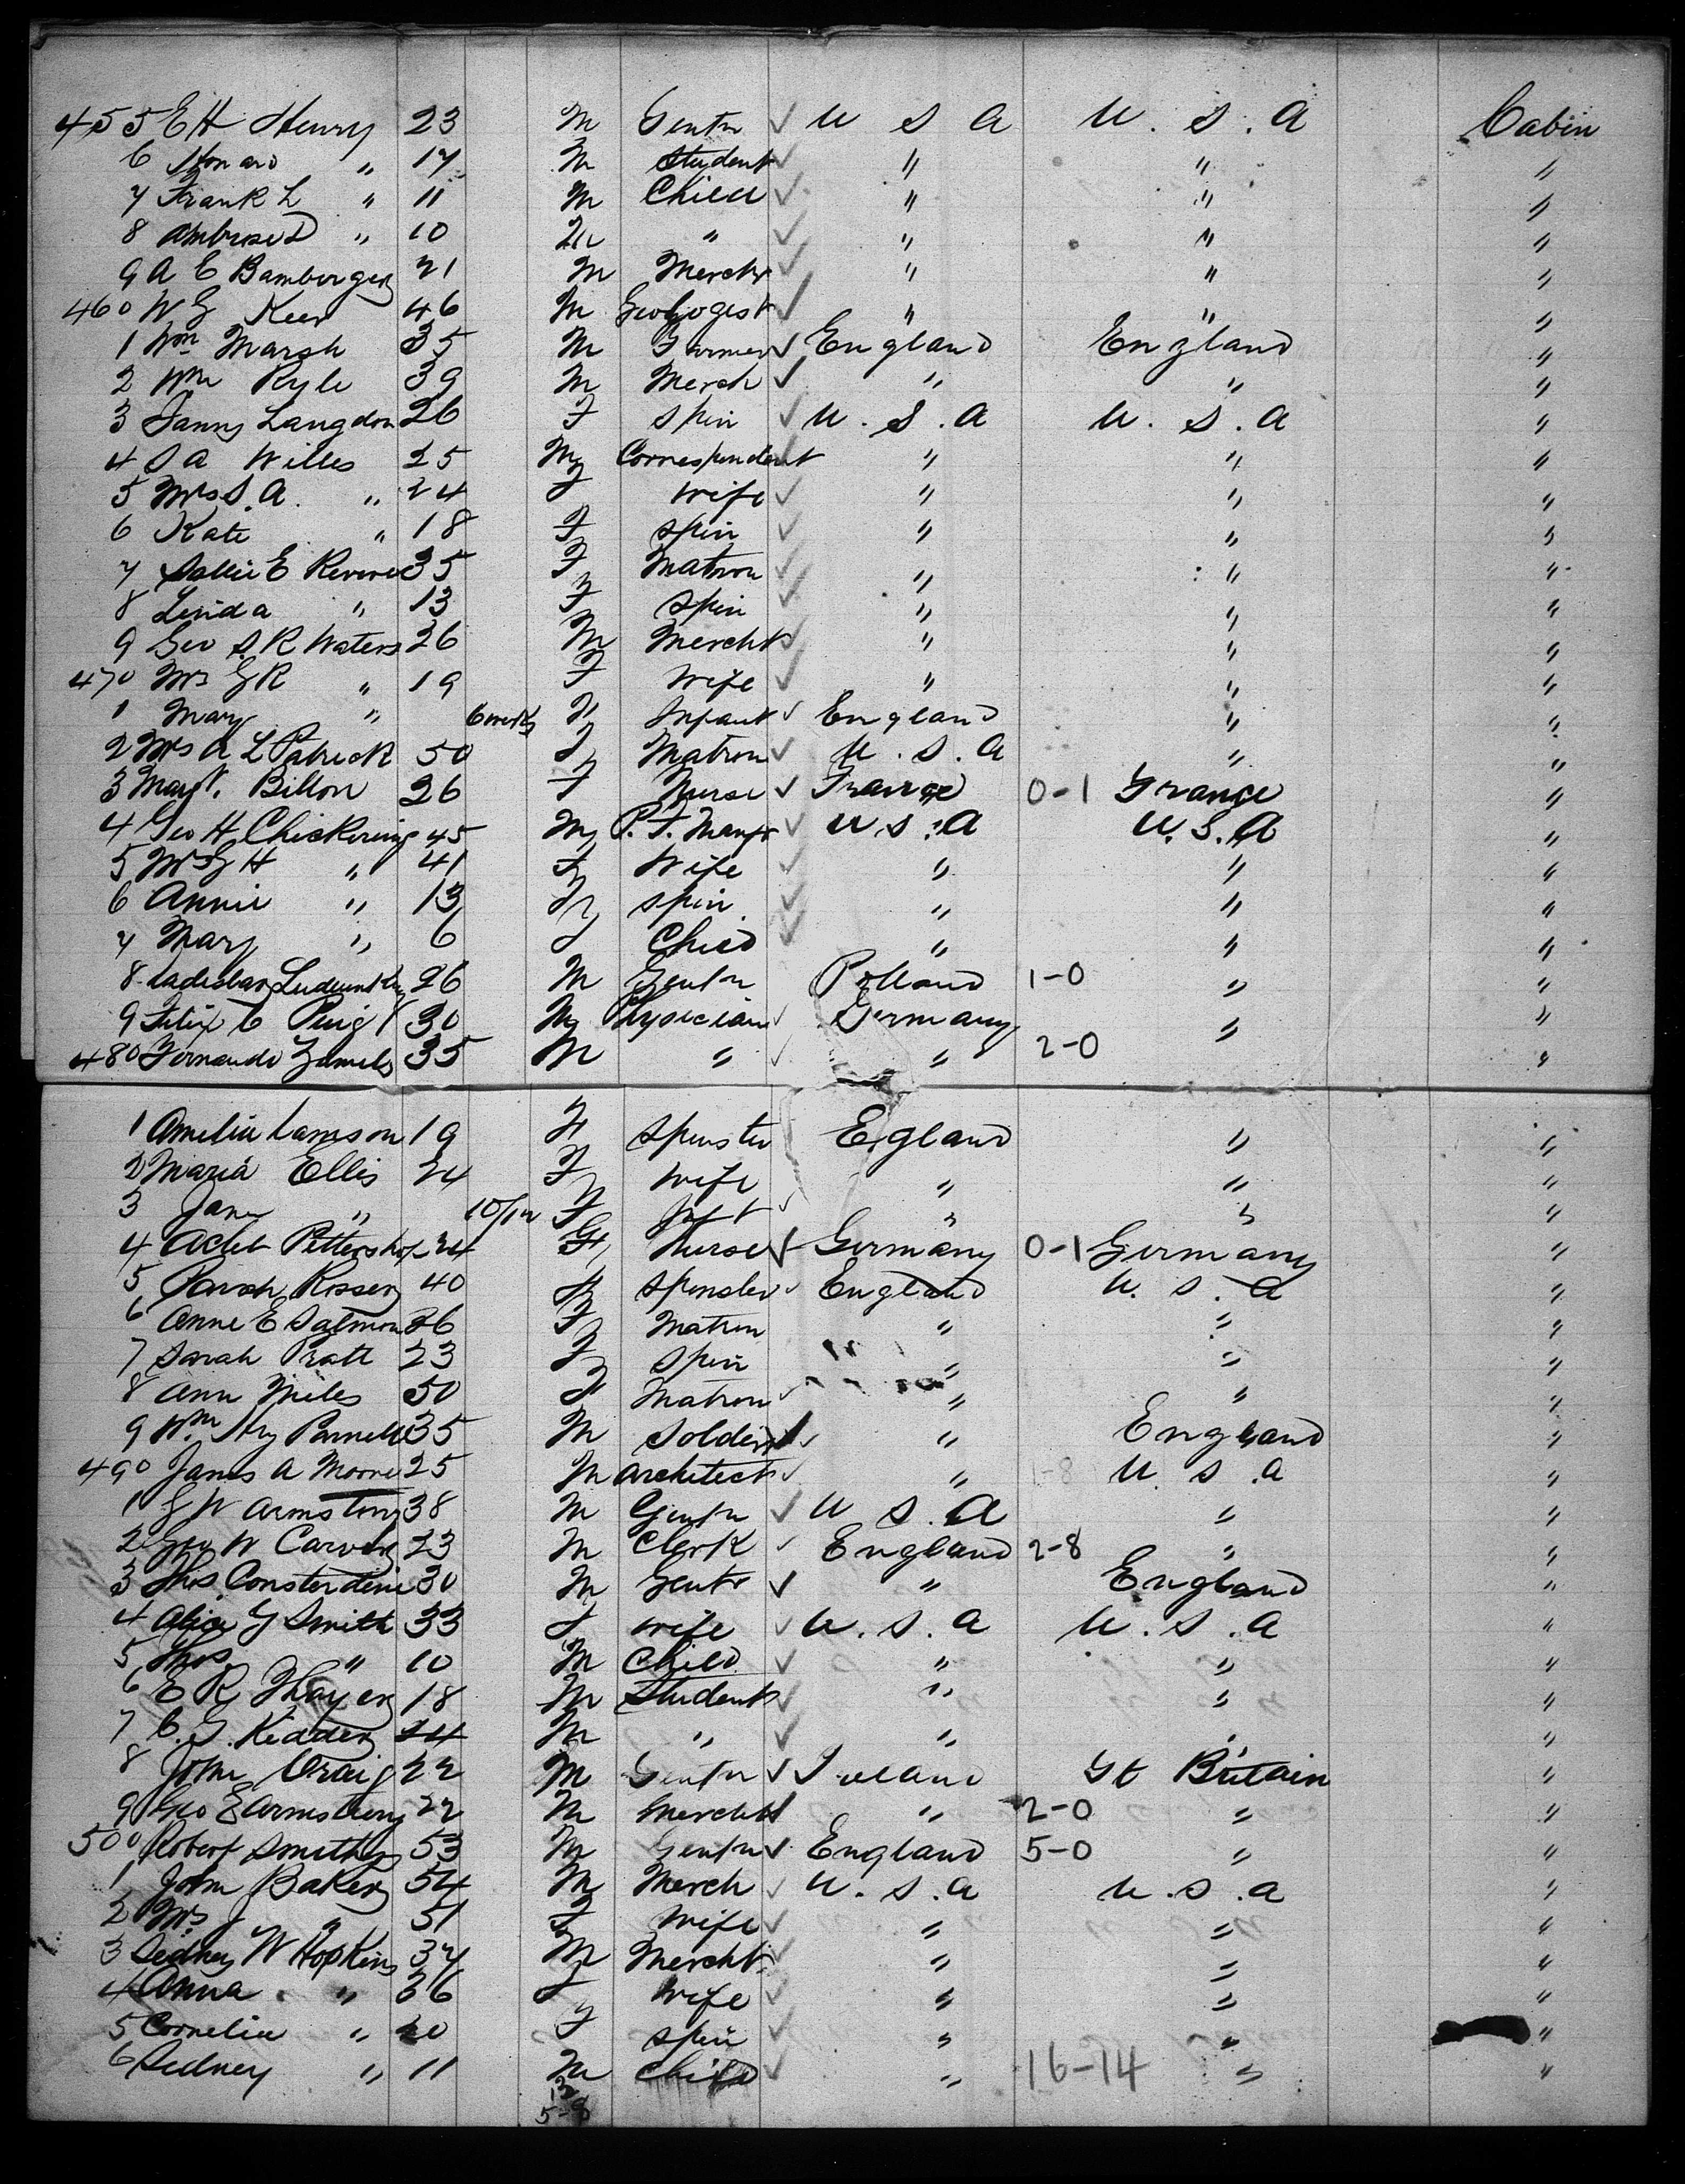 455 E H Henry 23 M Gentn ✓ U S A U. S. A Cabin
6 Howard " 17 M Student ✓ " " "
7 Frank L " 11 M Child ✓ " " "
8 Ambrose D " 10 M " ✓ " " "
9 A E Bamberger 21 M Mercht ✓ " " "
460 W G Keer 46 M Geologest ✓ " " "
1 Wm Marsh 35 M Farmer ✓ England England "
2 Wm Ryle 39 M Merch ✓ " " "
3 Fanny Langdon 26 F Spin ✓ U. S. A U. S. A "
4 S A Willes 25 M Correspondent " " "
5 Mrs S. A. " 24 F Wife ✓ " " "
6 Kate " 18 F Spin ✓ " " "
7 Sallie E Revere 35 F Matron ✓ " " "
8 Linda " 13 F Spin ✓ " " "
9 Geo S. R Waters 26 M Mercht ✓ " " "
470 Mrs G R " 19 F Wife ✓ " " "
1 Mary " 6 weeks F Infant ✓ England " "
2 Mrs A L Patrick 50 F Matron ✓ U. S. A " "
3 Margt. Billon 26 F Nurse ✓ France 0-1 France "
4 Geo H Chickering 45 M P. F. Manfr ✓ U S. A U. S. A "
5 Mrs G H " 41 F Wife ✓ " " "
6 Annie " 13 F Spin ✓ " " "
7 Mary " 6 F Child ✓ " " "
8 26 M Gentn Polland 1-0 " "
9 Felix C Puig 30 M Physician ✓ Germany " "
480 Fernando 35 M " ✓ " 2-0 " "
1 Amelia 19 F Spinster England " "
2 Maria Ellis 24 F Wife " " "
3 Jane " 10/12 F Inft ✓ " " "
4 24 F Nurse ✓ Germany 0-1 Germany "
5 Sarah Rosser 40 F Spinster ✓ England U. S. A "
6 Anne E Salmon 26 F Matron " " "
7 Sarah Pratt 23 F Spin " " "
8 Ann Miles 50 F Matron ✓ " " "
9 Wm Hy Parnell 35 M Soldier ✓ " England "
490 James A Moore 25 M Architect ✓ " 1-8 U S. A "
1 G W Armstrong 38 M Gentn ✓ U S. A " "
2 Geo W Carver 23 M Clerk ✓ England 2-8 " "
3 Thos Consterdine 30 M Gent ✓ " England "
4 Alice G Smith 33 F Wife ✓ U. S. A U. S. A "
5 Thos " 10 M Child ✓ " " "
6 E R Thayer 18 M Student ✓ " " "
7 C. G. Kidder 24 M " ✓ " " "
8 John Craig 22 M Gentn ✓ Ireland Gt Britain "
9 Geo E Armstrong 22 M Mercht " 2-0 " "
500 Robert Smith 53 M Gentn ✓ England 5-0 " "
1 John Baker 54 M Merch ✓ U. S. A U. S. A "
2 Mrs J " 51 F Wife ✓ " " "
3 Sedney W Hopkins 37 M Mercht ✓ " " "
4 Anna " 36 F Wife ✓ " " "
5 Cornelia " 20 F Spin ✓ " " "
6 Sedney " 11 M Child ✓ " 16-14 " "